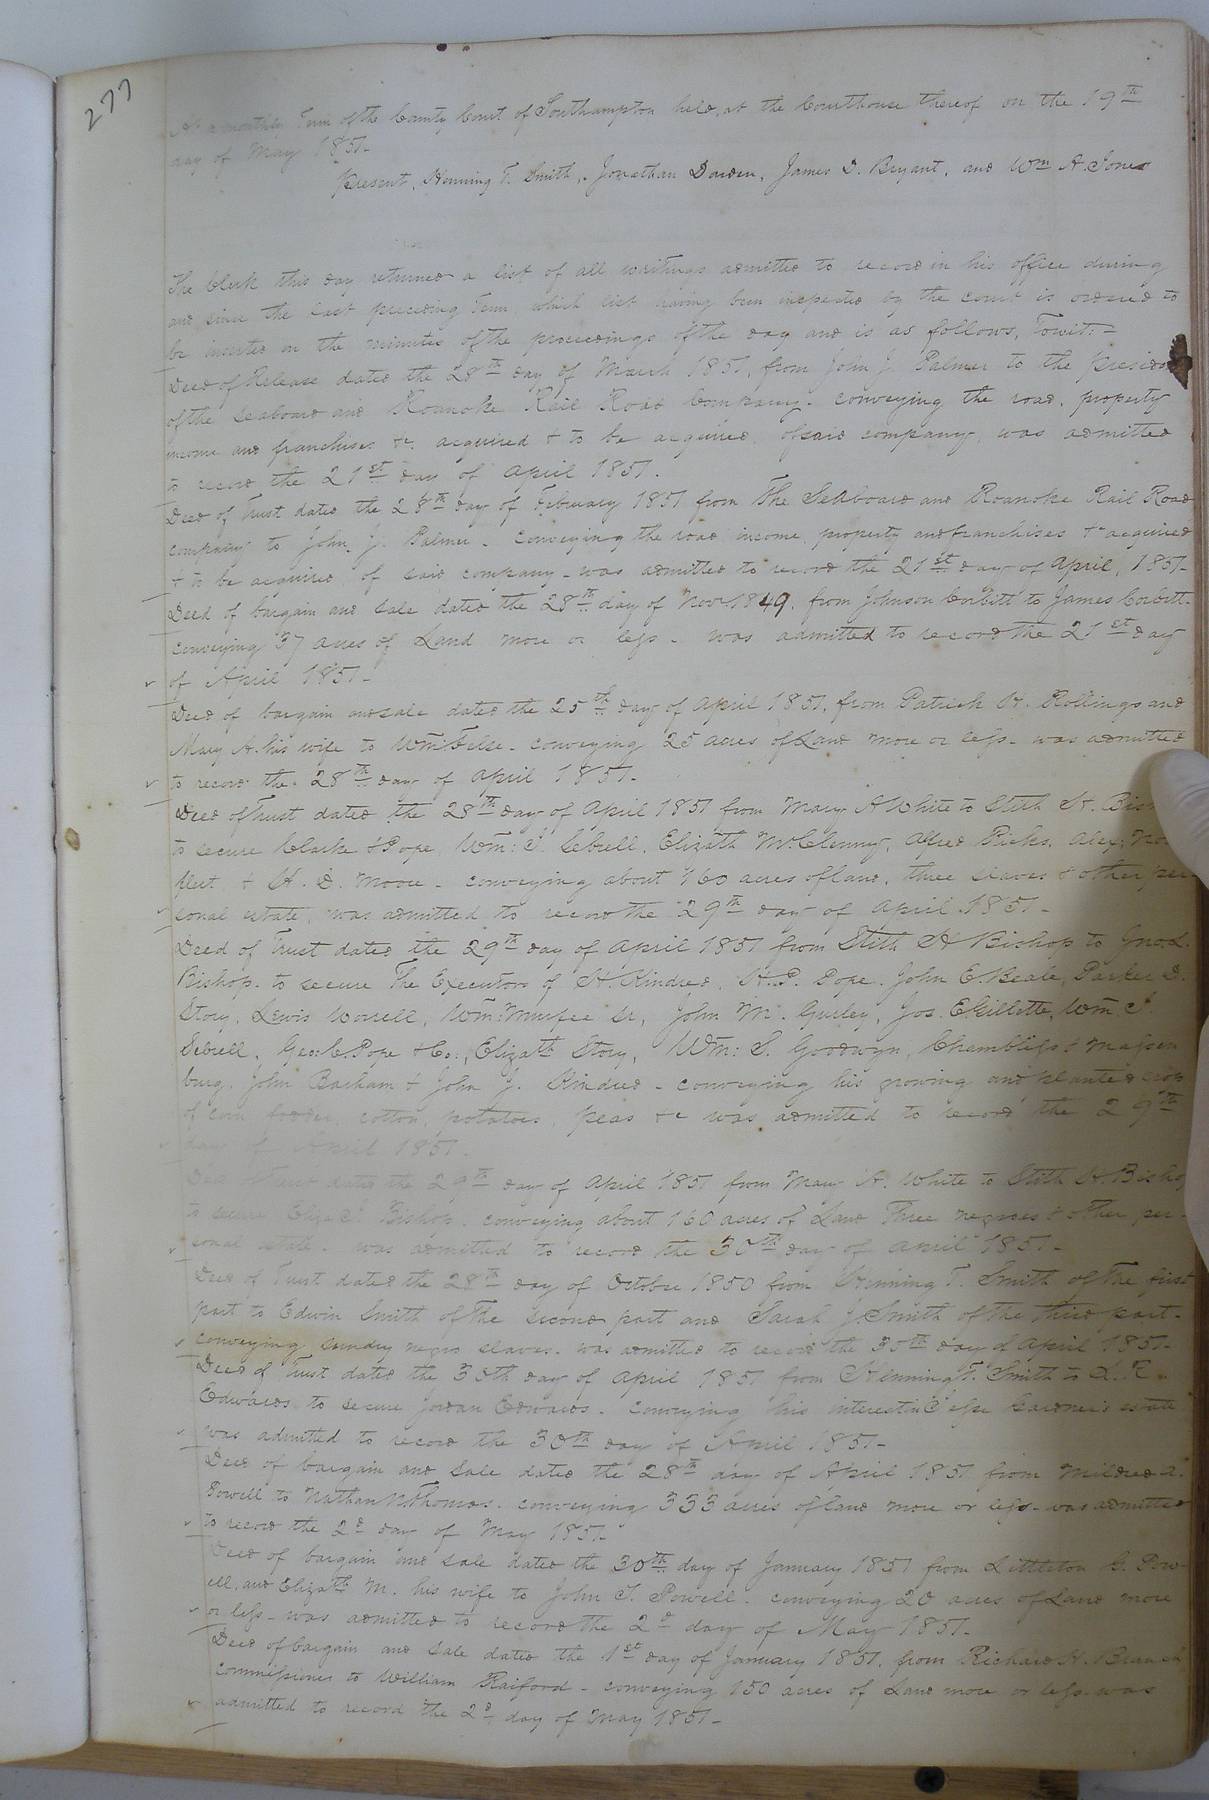 277
At a monthly Term of the County Court of Southampton held, at the Courthouse thereof on the 19th
day of May 1851-
Present, Henning T. Smith, Jonathan Darden, James D. Bryant, and Wm A. Jones
The Clerk this day returned a list of all writings admitted to record in his office during
and since the last preceding Term, which list having been inspected by the court is ordered to
be inserted on the minutes of the proceedings of the day and is as follows, Towit:-
Deed of Release dated the 28th day of March 1851, from John J. Palmer to the President
of the Seaboard and Roanoke Rail Road Company. conveying the road, property
income and franchises &c. acquired & to be acquired, of said company, was admitted
to record the 21st day of April 1851.
Deed of Trust dated the 28th day of February 1851 from The Seaboard and Roanoke Rail Road
company to John J. Palmer - conveying the road income, property and franchises &c acquired
& to be acquired, of said company - was admitted to record the 21st day of April, 1851-
Deed of bargain and sale dated the 28th day of Novr 1849, from Johnson Corbitt to James Corbitt-
conveying 37 acres of Land more or less - was admitted to record the 21st day
of April 1851-
Deed of bargain and sale dated the 25th day of April 1851, from Patrick H. Rollings and
Mary A. his wife to Wm - conveying 25 acres of Land more or less - was admitted
to record the 28th day of April 1851-
Deed of Trust dated the 28th day of April 1851 from Mary A White to Stith H. Bish
to secure Clarke & Pope, Wm: J. Sebrell, Elizath McClenny, Alfred Ricks, Alex:
& H. D. Moore - conveying about 160 acres of land, three slaves & other per-
sonal estate, was admitted to record the 29th day of April 1851-
Deed of Trust dated the 29th day of April 1851 from Stith H Bishop to Jno. L.
Bishop - to secure The Executors of H. Kindred, H. P. Pope, John E. Beale, Parker D.
Story, Lewis Worrell, Wm: Murfee Sr, John M. Gurley, Jos. E Gillette, Wm J.
Sebrell, Geo: C. Pope & Co:, Elizath Story, Wm: S. Goodwyn, Chambliss & Massen
burg, John Barham & John J. Kindred - conveying his growing and planted crop
of corn fodder, cotton, potatoes, peas &c was admitted to record the 29th
day of April 1851.
Deed of Trust dated the 29th day of April 1851 from Mary A. White to Stith H. Bisho
to secure Eliza J. Bishop, conveying about 160 acres of Land Three negroes & other per-
sonal estate - was admitted to record the 30th day of April 1851-
Deed of Trust dated the 28th day of October 1850 from Henning T. Smith of The first
part to Edwin Smith of The second part and Sarah J Smith of the third part -
conveying sundry negro slaves - was admitted to record the 30th day of April 1851-
Deed of Trust dated the 30th day of April 1851 from Henning T. Smith to L. R.
Edwards to secure Jordan Edwards - conveying his interest in Gardner's estate
was admitted to record the 30th day of April 1851-
Deed of bargain and sale dated the 28th day of April 1851 from Mildred A.
Powell to Nathan Thomas - conveying 333 acres of land more or less - was admitted
to record the 2d day of May 1851-
Deed of bargain and sale dated the 30th day of January 1851 from Littleton G. Pow-
ell, and Elizath M. his wife to John T. Powell - conveying 20 acres of Land more
or less - was admitted to record the 2d day of May 1851-
Deed of bargain and sale dated the 1st day of January 1851, from Richard H. Branch
commissioner to William Raiford - conveying 150 acres of Land more or less - was
admitted to record the 2d day of May 1851-